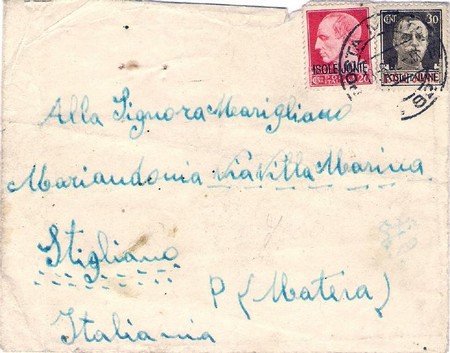 ISOLE JONIE
CENT. 30
ISOLE ITALIANE
POSTA
Alla Signora Marigliano
Mariandonia Via Villa Marina
Stigliano
P (Matera)
Italiania